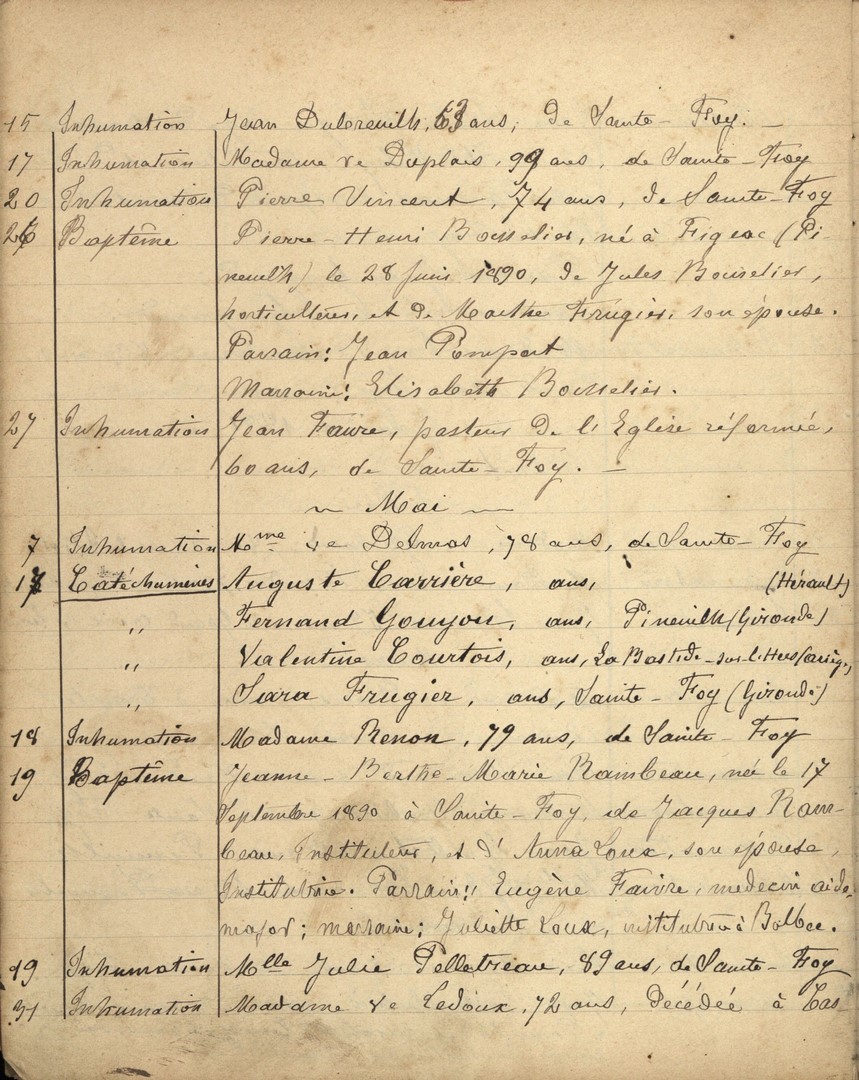 15 Inhumation Jean Dubreuilh, 63 ans, de Sainte-Foy. —
17 Inhumation Madame Ve Duplais, 99 ans, de Sainte-Foy
20 Inhumation Pierre Vincent, 74 ans, de Sainte-Foy
26 Baptême Pierre-Henri Bousselier, né à Figeac (Pi-
neuilh) le 28 Juin 1890, de Jules Bousselier,
horticulteur, et de Marthe Frugier, son épouse.
Parrain: Jean Pompart
Marraine: Elisabeth Bousselier.
27 Inhumation Jean Faivre, pasteur de l'Eglise réformée,
60 ans, de Sainte-Foy. —
~ Mai ~
7 Inhumation Mme Ve Delmas, 78 ans, de Sainte-Foy
17 Catéchumènes Auguste Carrière, ans, (Hérault)
,, Fernand Goujon, ans, Pineuilh (Gironde)
,, Valentine Courtois, ans, La Bastide-sur-l'Hers (Ariège)
,, Sara Frugier, ans, Sainte-Foy (Gironde)
18 Inhumation Madame Renon, 79 ans, de Sainte-Foy
19 Baptême Jeanne-Berthe-Marie Rambeau, née le 17
Septembre 1890 à Sainte-Foy, de Jacques Ram-
beau, Instituteur, et d'Anna Loux, son épouse,
Institutrice. Parrain: Eugène Faivre, medecin aide-
major; marraine: Juliette Loux, institutrice à Bolbec.
19 Inhumation Mlle Julie Pelletreau, 89 ans, de Sainte-Foy
31 Inhumation Madame Ve Ledoux, 72 ans, décédée à Cas-